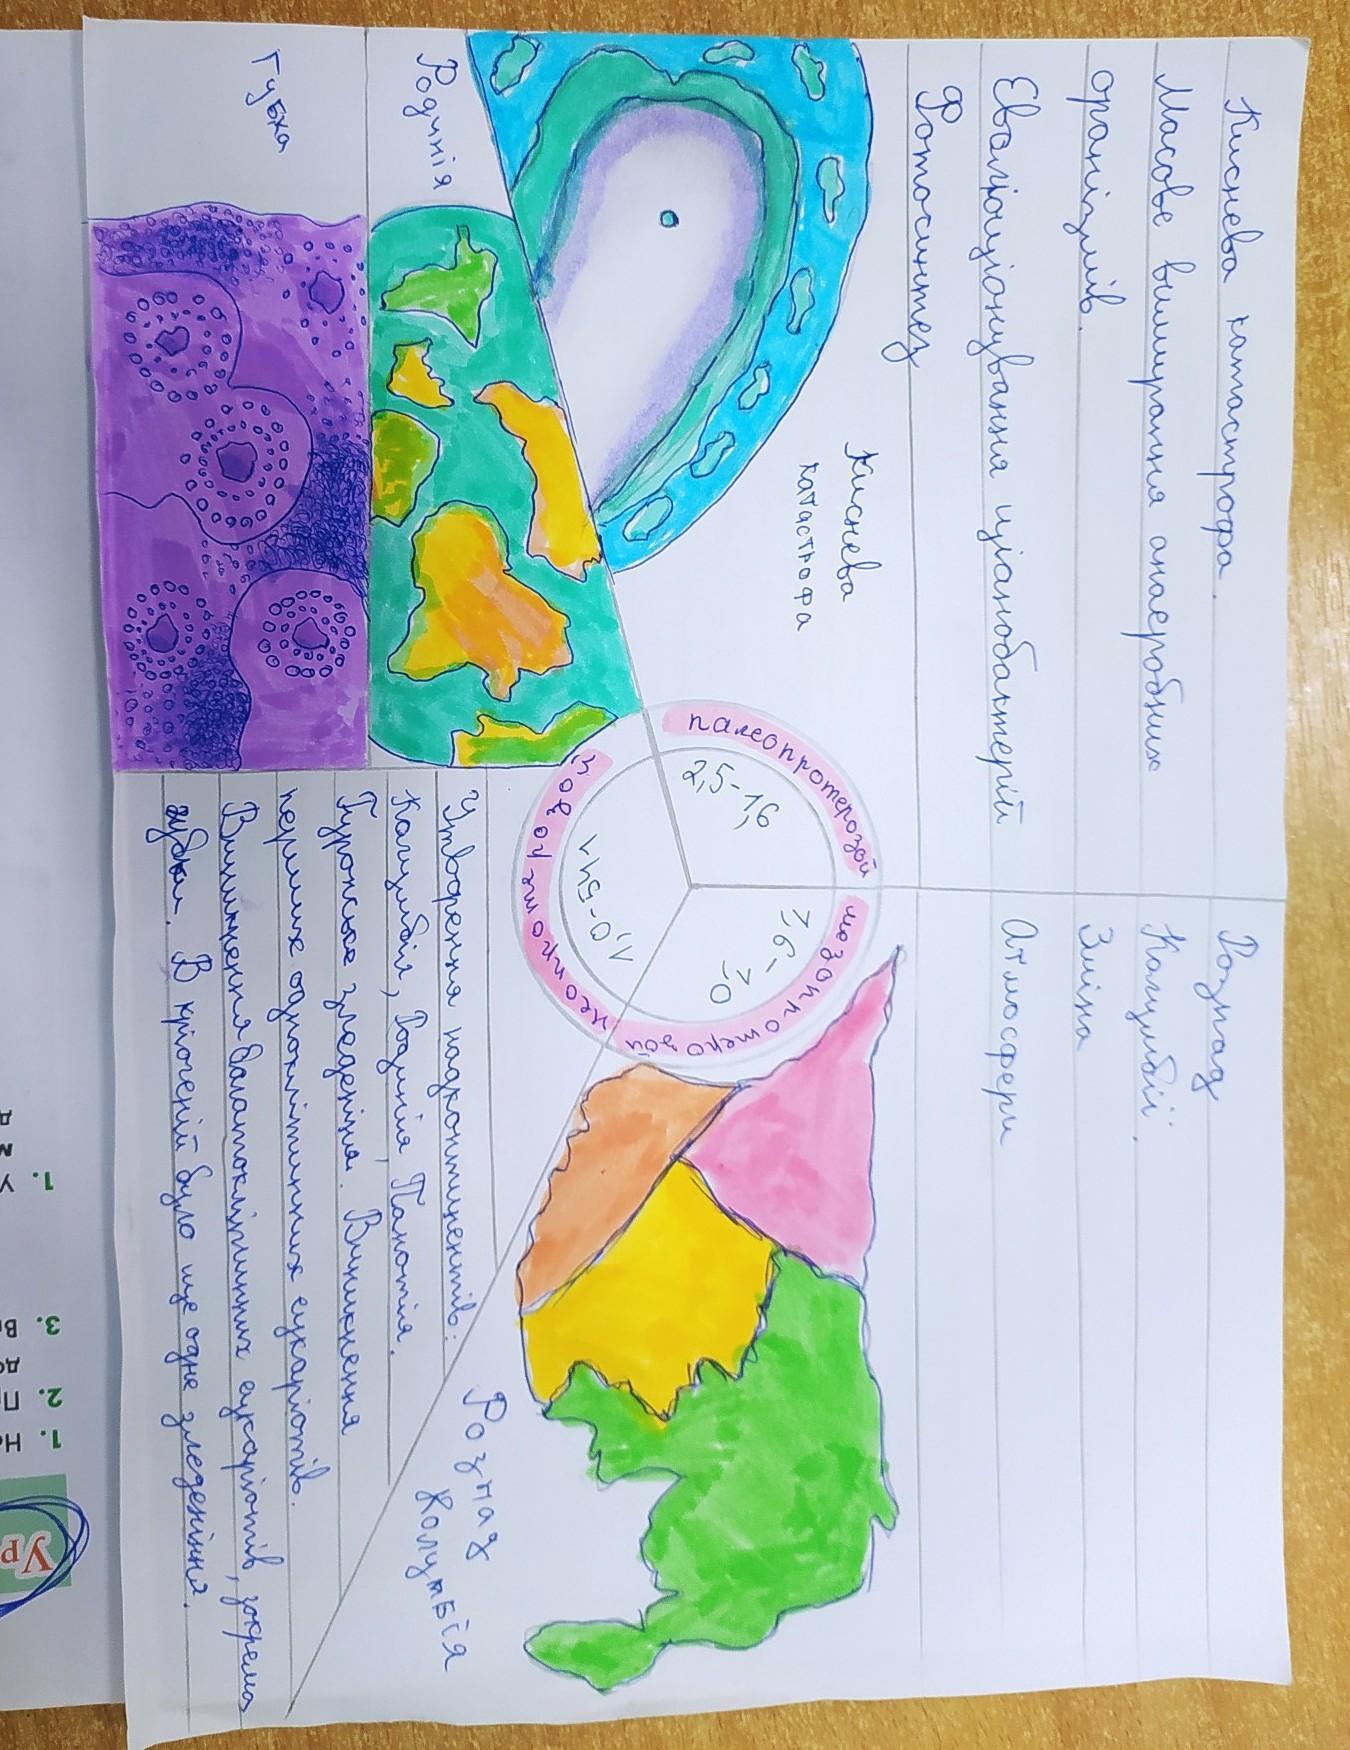 Киснева катастрофа.
Масове вимирання анаеробних
організмів.
Еволюціонування ціанобактерій
Фотосинтез
Киснева
катастрофа
Розпад
Колумбії.
Зміна
Атмосфери
Родинія
Губка
палеопротерозой
2,5-1,6
мезопротерозой
1,6-1,0
неопротерозой
1,0-541
Утворення надконтинентів:
Колумбія, Родинія, Панотія.
Гуронське зледеніння. Виникнення
перших одноклітинних еукаріотів.
Виникнення багатоклітинних еукаріотів, зокрема
губки. В кріогеній було ще одне зледеніння.
Розпад
Колумбія
1. У
3. Ви
до
2. П
1. На
Ур